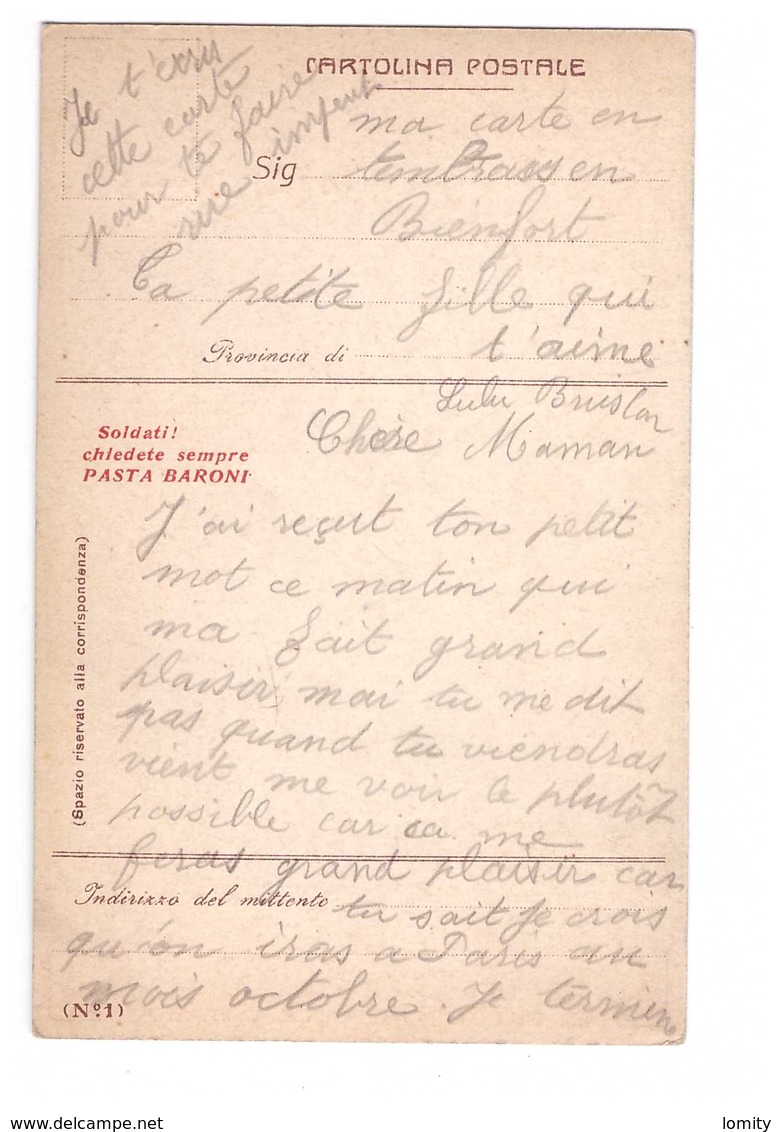 CARTOLINA POSTALE
Je t'écris
cette carte
pour te faire
rire
Sig
Provincia di
Soldati!
chiedete sempre
PASTA BARONI
(Spazio riservato alla corrispondenza)
Chère Maman
J'ai reçut ton petit
mot ce matin qui
ma fait grand
plaisir mai tu me dit
pas quand tu viendras
vient me voir le plutôt
possible car ca me
feras grand plaisir car
Indirizzo del mittente
tu sait Je crois
qu'on iras a Paris au
mois octobre. Je termine
(No. 1)
ma carte en
Bienfort
Ta petite fille qui
t'aime
Lulu
lomity